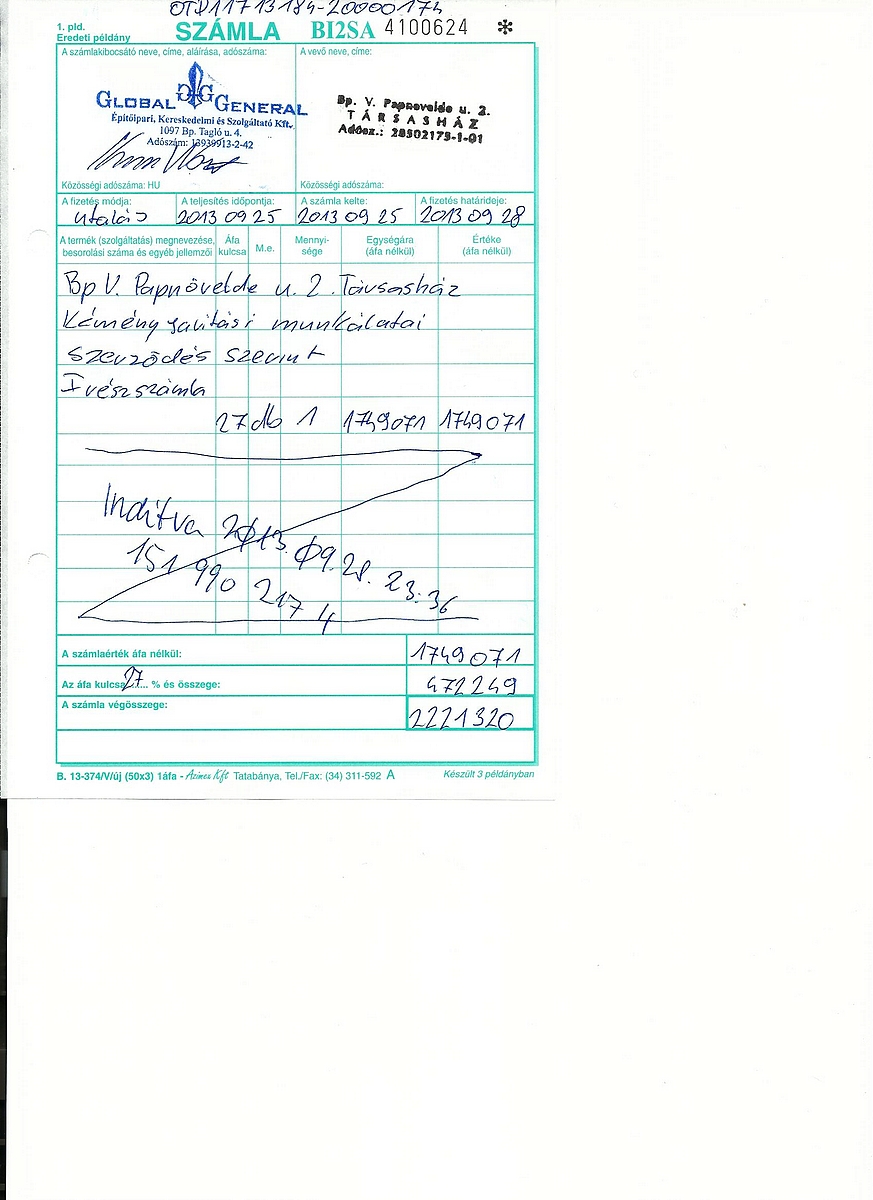 OTP 11713184-20000174
1. pld.
Eredeti példány
SZÁMLA BI2SA 4100624 *
A számlakibocsátó neve, címe, aláírása, adószáma:
A vevő neve, címe:
GLOBAL GG GENERAL
Építőipari, Kereskedelmi és Szolgáltató Kft.
1097 Bp. Tagló u. 4.
Adószám: 13939913-2-42
Bp. V. Papnövelde u. 2.
TÁRSASHÁZ
Adósz.: 28502179-1-01
Közösségi adószáma: HU
Közösségi adószáma:
A fizetés módja: A teljesítés időpontja: A számla kelte: A fizetés határideje:
utalás 2013 09 25 2013 09 25 2013 09 28
A termék (szolgáltatás) megnevezése, besorolási száma és egyéb jellemzői
Áfa kulcsa
M.e.
Mennyi-sége
Egységára (áfa nélkül)
Értéke (áfa nélkül)
Bp V. Papnövelde u. 2. Társasház
Kémény javítási munkálatai
szerződés szerint
I részszámla
27 db 1 1749071 1749071
Indítva 2013. 09. 28. 23:36
151 990 217 4
A számlaérték áfa nélkül: 1749071
Az áfa kulcsa 27 ..... % és összege: 472249
A számla végösszege: 2221320
B. 13-374/V/új (50x3) 1áfa - Azimex Kft Tatabánya, Tel./Fax: (34) 311-592 A
Készült 3 példányban